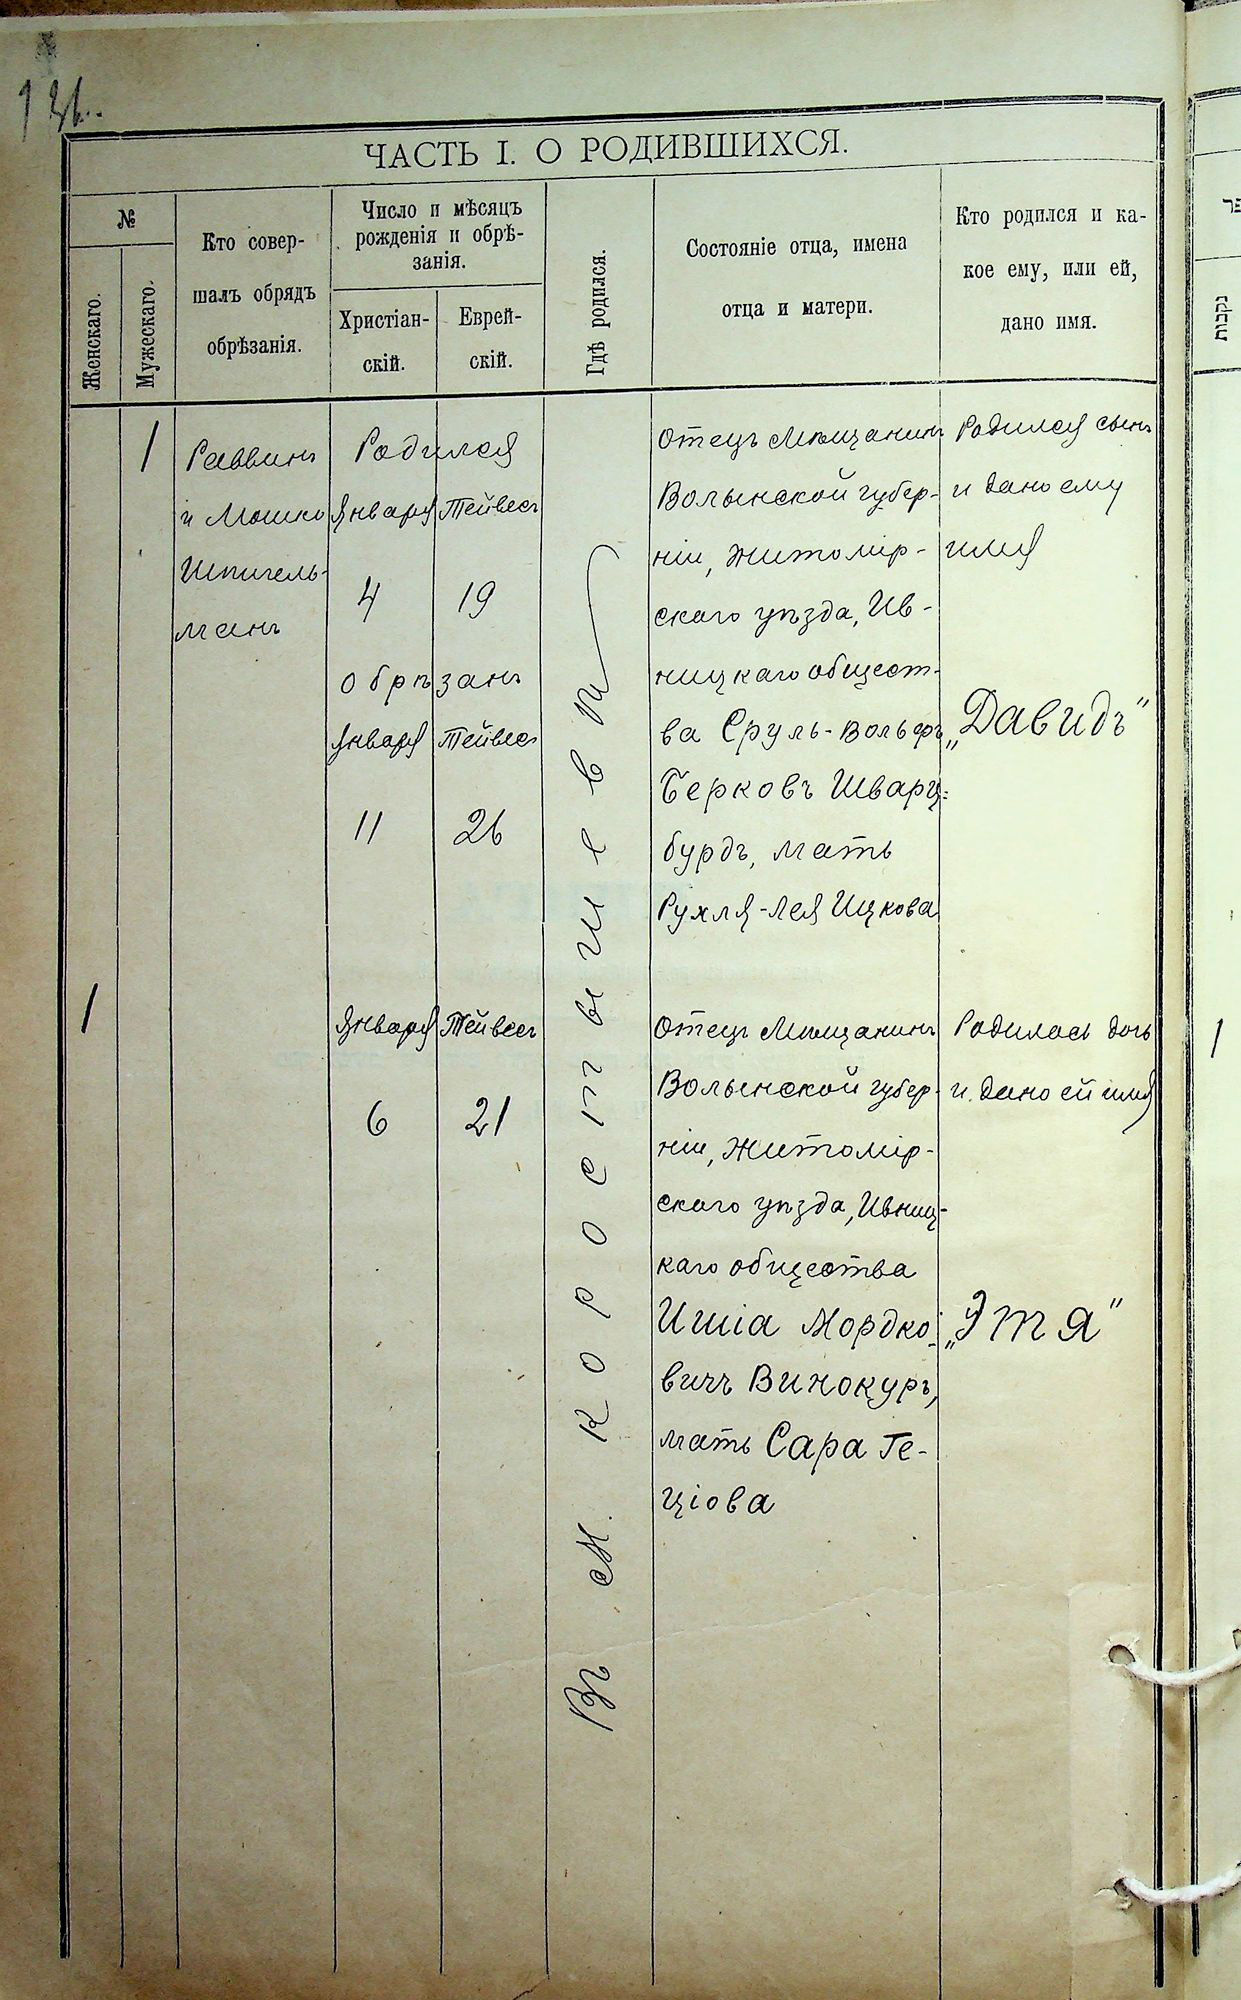 ЧАСТЬ I. О РОДИВШИХСЯ.
№
Женскаго.
Мужескаго.
Кто совер-
шалъ обрядъ
обрѣзанія.
Число и мѣсяцъ
рожденія и обрѣ-
занія.
Христіан-
скій.
Еврей-
скій.
Гдѣ родился.
Состояніе отца, имена
отца и матери.
Кто родился и ка-
кое ему, или ей,
дано имя.
1
Раввинъ
и Мошко
Шпигель-
манъ
Родился
Января Тейвесъ
4 19
обрѣзанъ
Января Тейвесъ
11 26
Въ м. Коростышевѣ
Отецъ Мѣщанинъ
Волынской губер-
ніи, Житомір-
скаго уѣзда, Ив-
ницкаго общест-
ва Сруль-Вольфъ
Берковъ Шварц=
бурдъ, мать
Рухля-Лея Ицкова
Родился сынъ
и дано ему
имя
„Давидъ"
1
Января Тейвесъ
6 21
Отецъ Мѣщанинъ
Волынской губер-
ніи, Житомір-
скаго уѣзда, Ивниц-
каго общества
Ишіа Мордко-
вичъ Винокуръ,
мать Сара Ге-
ціова
Родилась дочь
и дано ей имя
„Этя"
נקבות
1